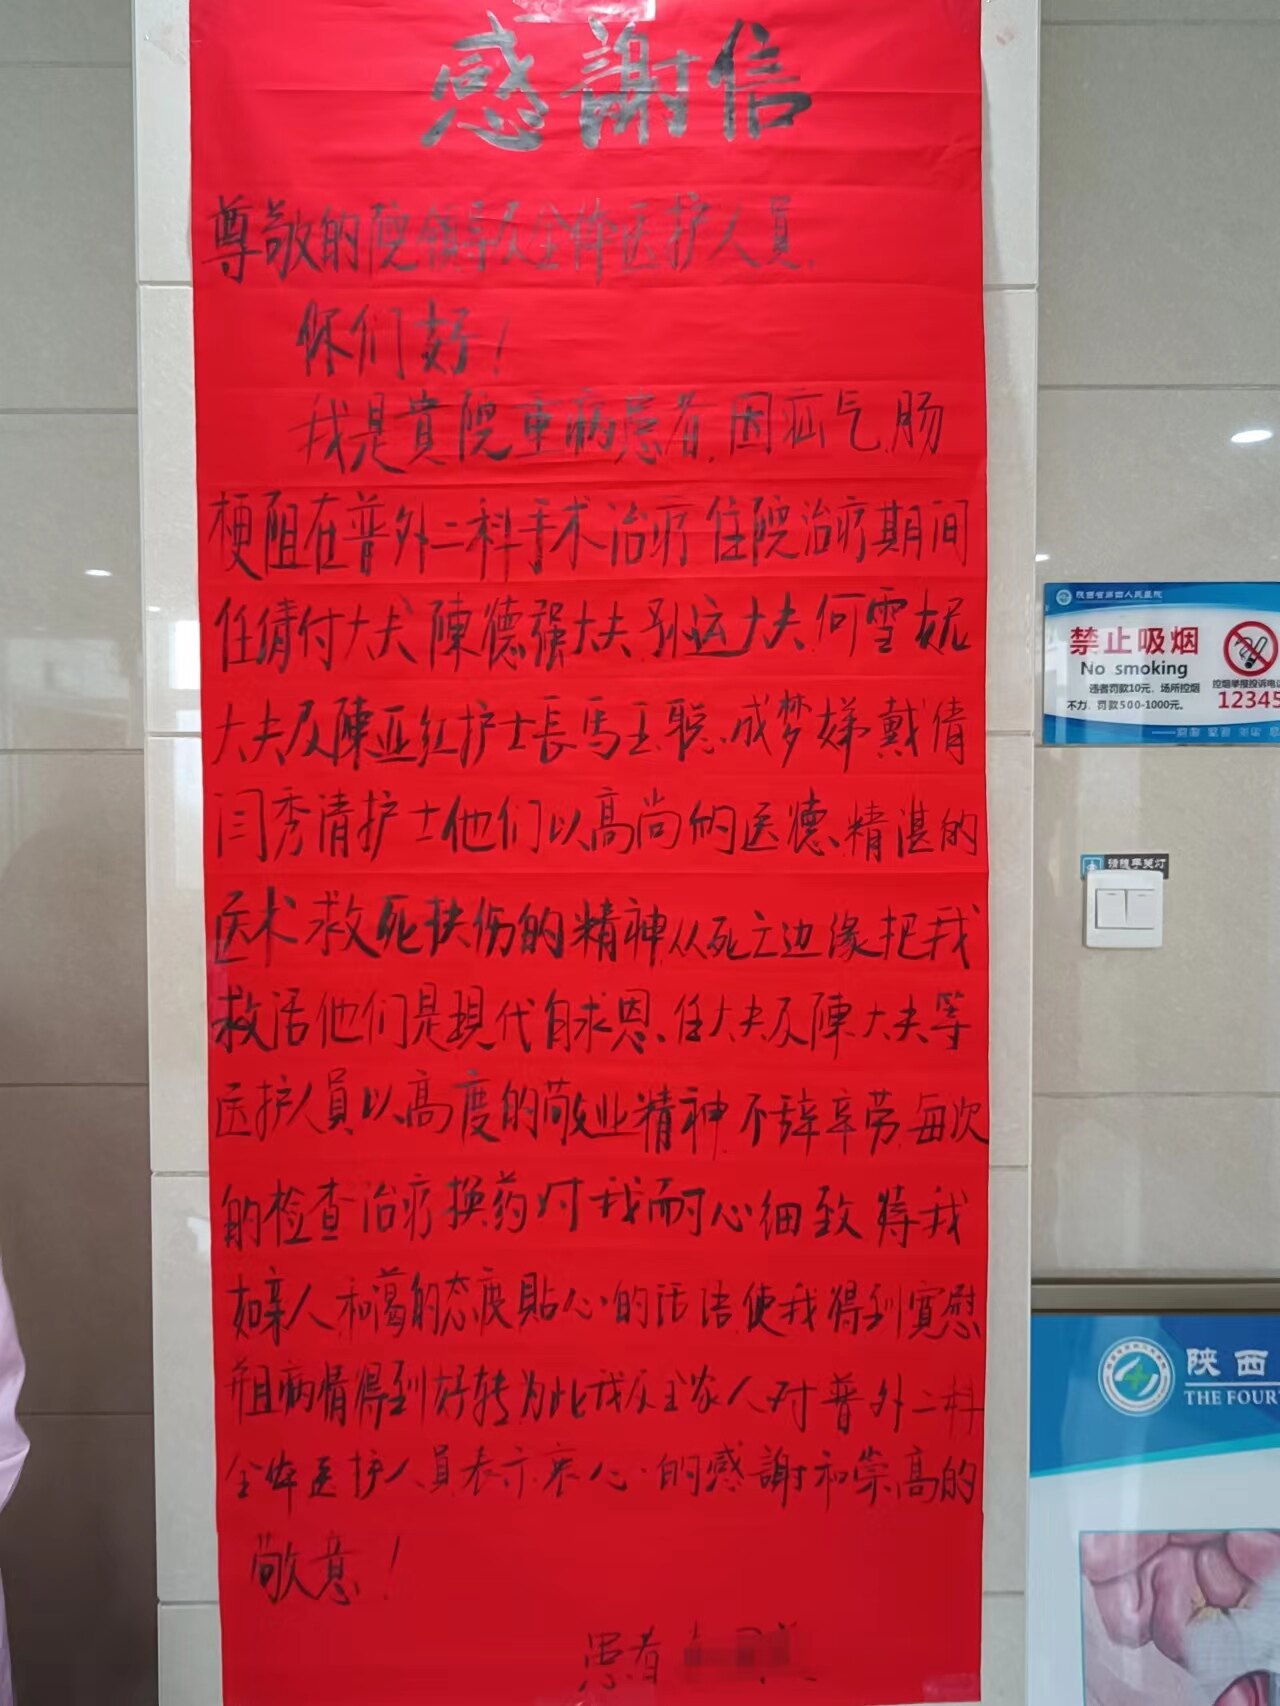 感謝信
尊敬的院领导及全体医护人員
你们好！
我是貴院重病患者,因疝气肠
梗阻在普外二科手术治疗住院治疗期间
任倩付大夫陳德强大夫別运大夫何雪妮
大夫及陳亚红护士長馬玉聪成梦娣戴倩
闫秀清护士他们以高尚的医德、精湛的
医术救死扶伤的精神从死亡边缘把我
救活他们是現代白求恩、任大夫及陳大夫等
医护人員以高度的敬业精神不辞辛劳每次
的检查治疗换药对我耐心细致待我
如亲人和蔼的态度貼心的话语使我得到寬慰
并且病情得到好转为此我及全家人对普外二科
全体医护人員表示衷心的感謝和崇高的
敬意！
患者
陕西省第四人民医院
禁止吸烟
No smoking
违者罚款10元，场所控烟
不力，罚款500-1000元。
控烟举报投诉电话
12345
请随手关灯
陕西
THE FOUR